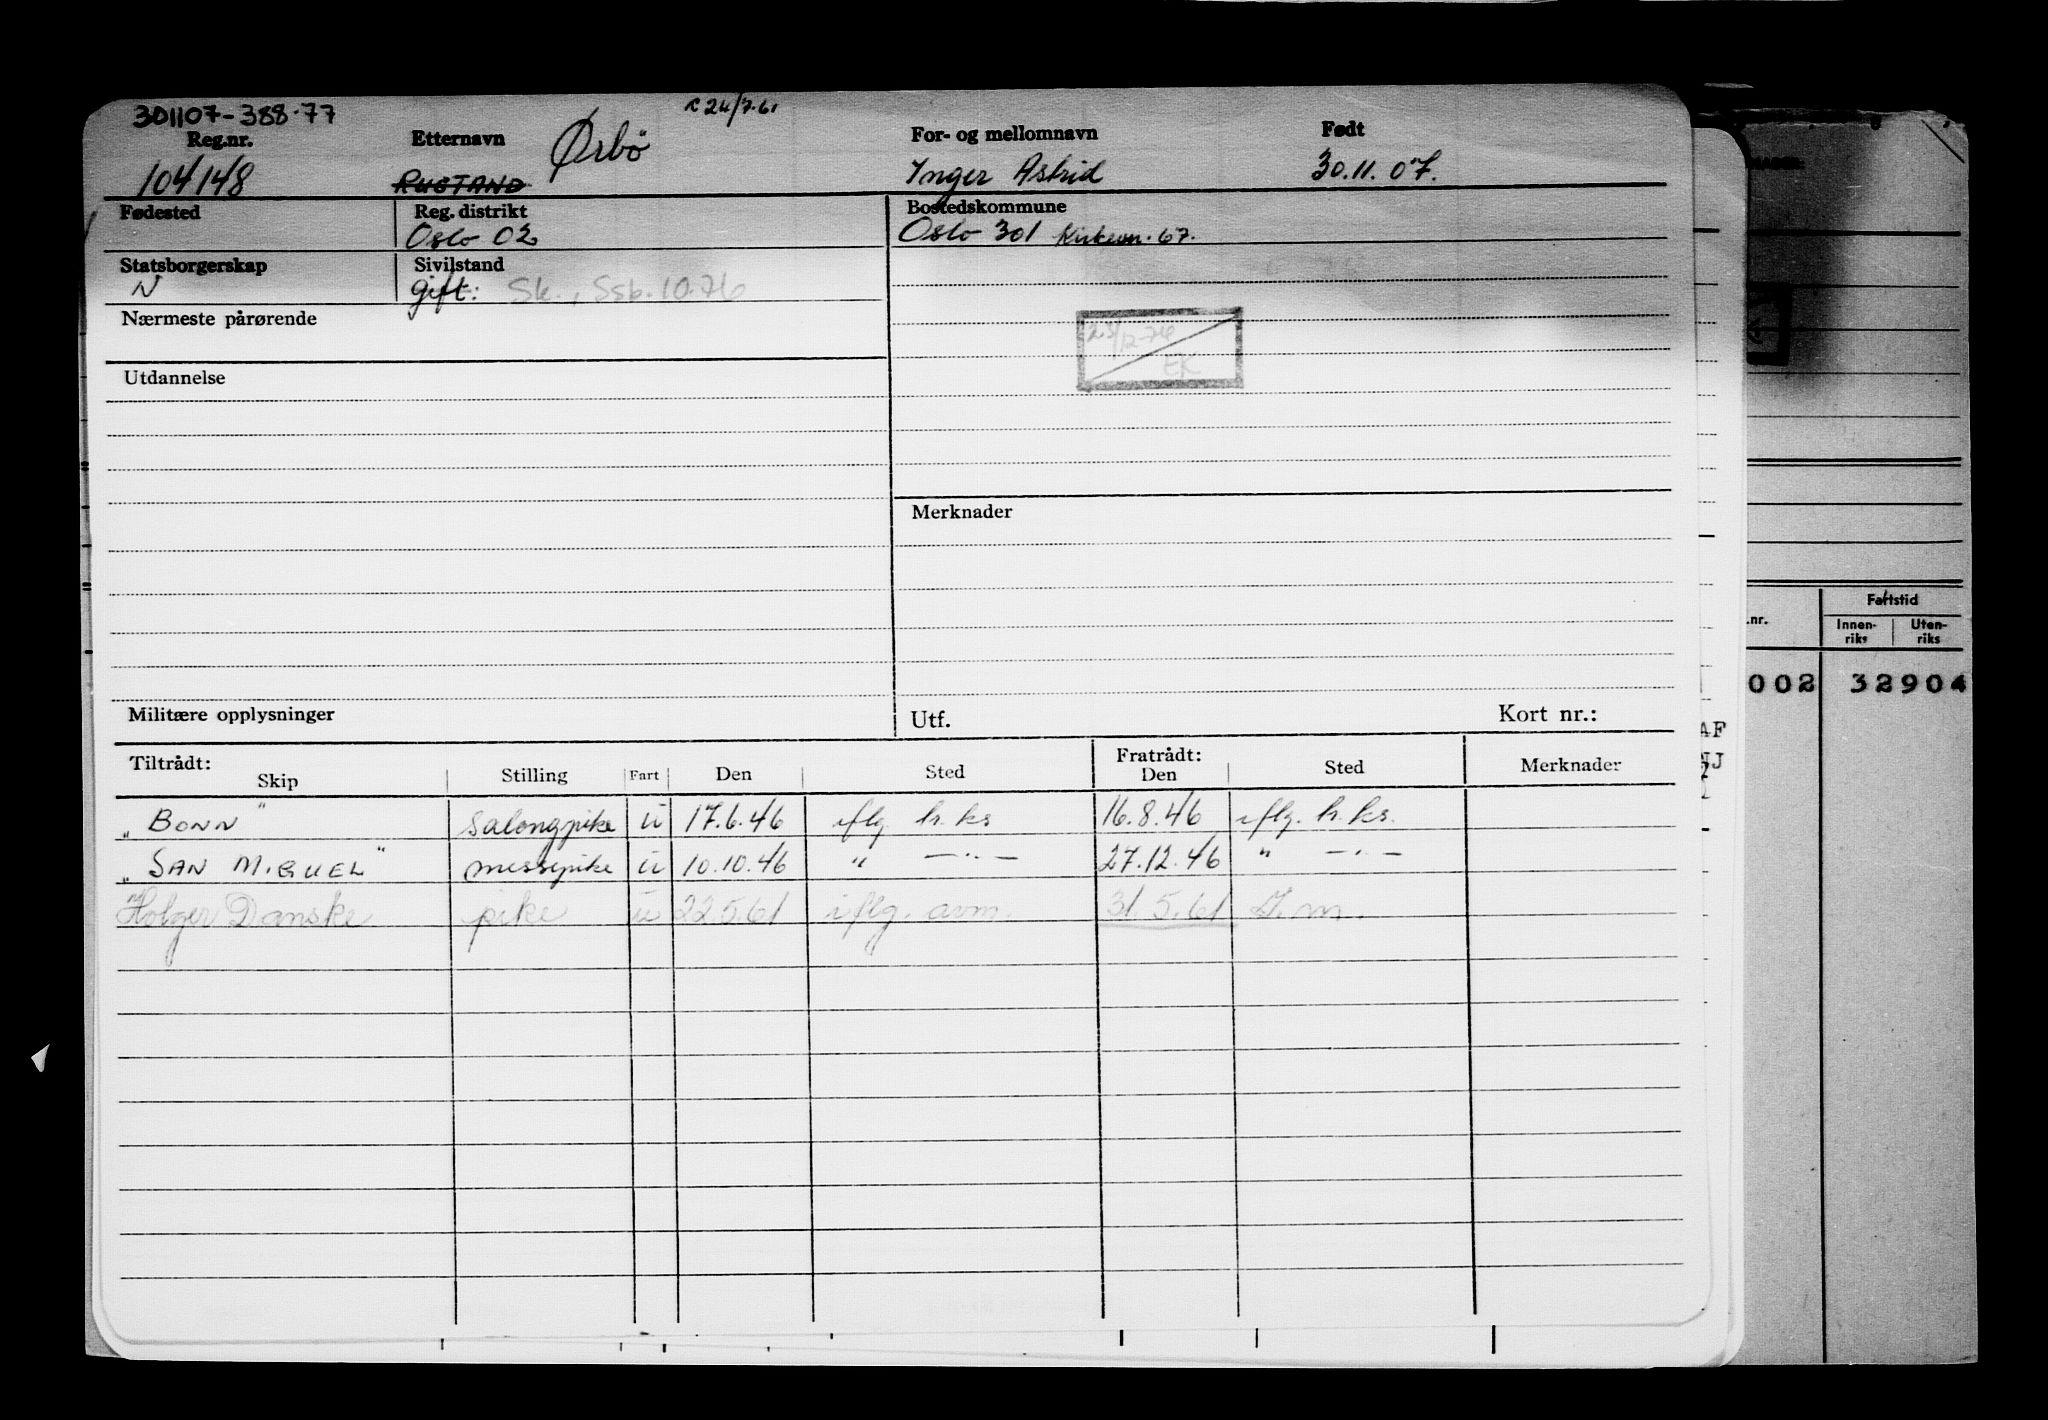 301107-388.77
24/7.61
Reg.nr. Etternavn Ørbö For- og mellomnavn Født
104148 RUSTAND Inger Astrid 30.11.07.
Fødested Reg. distrikt Bostedskommune
Oslo 02 Oslo 301 Kirkevn. 67.
Statsborgerskap Sivilstand
N gift: Sk., Ssb. 10.76
Nærmeste pårørende
23/12-76
EK
Utdannelse
Merknader
Militære opplysninger Utf. Kort nr.:
Tiltrådt: Fratrådt:
Skip Stilling Fart Den Sted Den Sted Merknader
"BONN" salongpike u 17.6.46 iflg. h.ks 16.8.46 iflg. h.ks.
"SAN MIGUEL" messepike u 10.10.46 " —"— 27.12.46 " —"—
"Holger Danske pike u 22.5.61 iflg. avm. 31.5.61 
Fartstid
.nr. Innen-riks Uten-riks
002 32904
AF
NJ